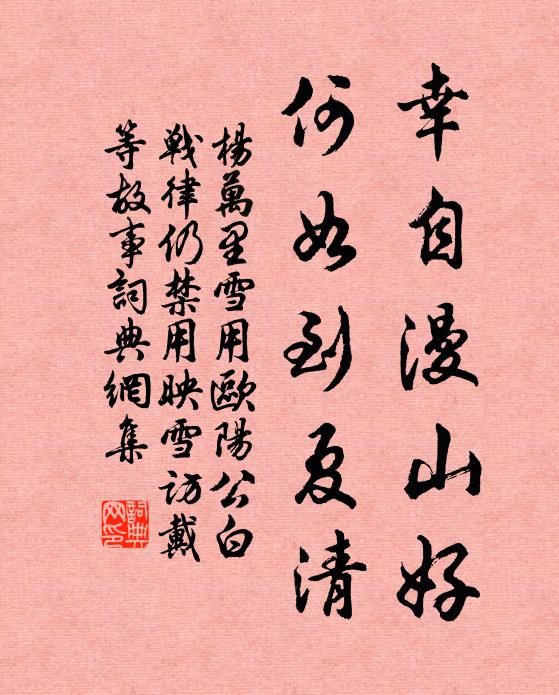 幸自漫山好
何如到夏清
楊萬里雪用歐陽公白
戦律仍禁用映雪訪戴
等故事詞典網集
詞典網印